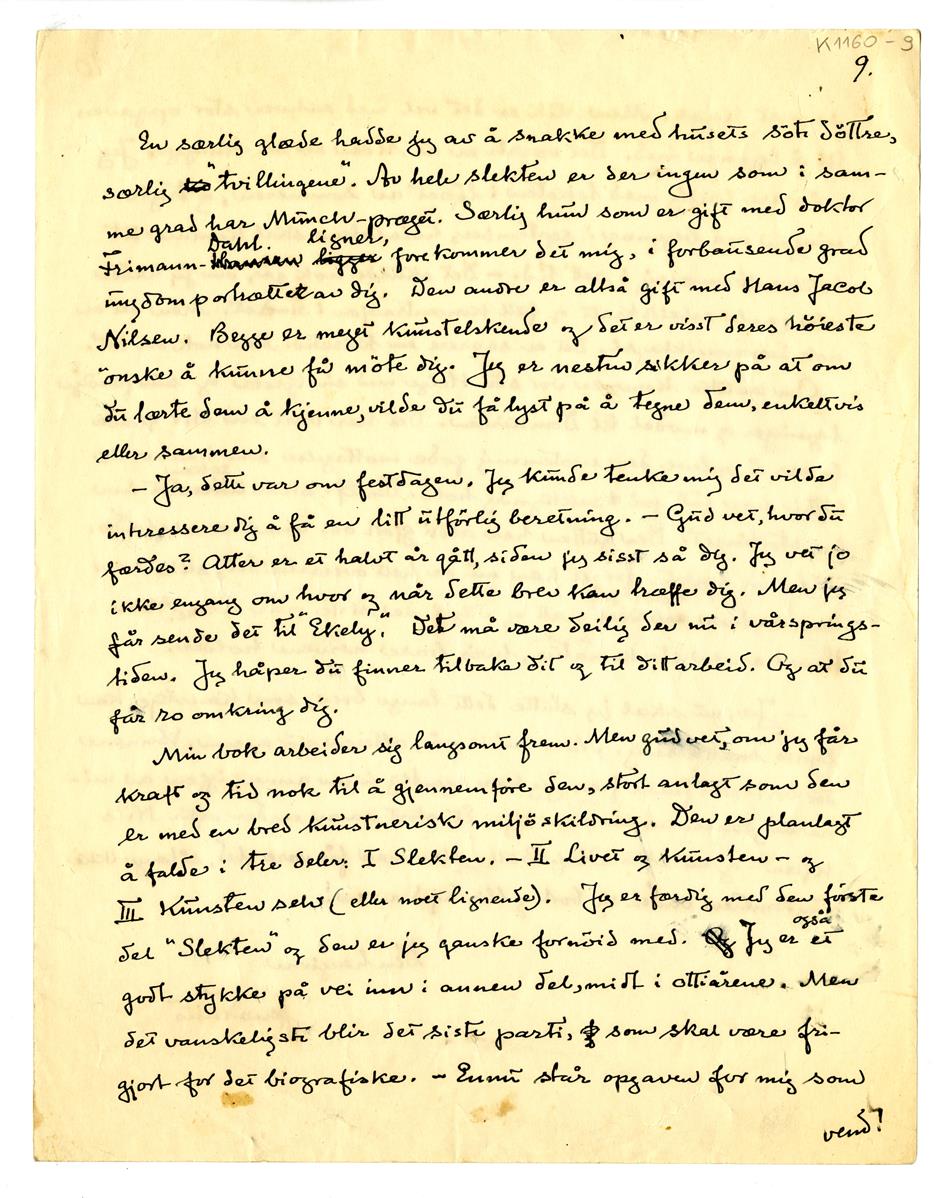 K1160-9
9.
En særlig glæde hadde jeg av å snakke med husets söte döttre,
særlig "tvillingene". Av hele slekten er der ingen som i sam-
me grad har Munch-præget. Særlig hun som er gift med doktor
Dahl. ligner,
Frimann-Hansen ligger forekommer det mig, i forbausende grad
ungdomportrættet av dig. Den andre er altså gift med Hans Jacob
Nilsen. Begge er meget kunstelskende og det er visst deres höieste
önske å kunne få möte dig. Jeg er nesten sikker på at om
du lærte dem å kjenne, vilde du få lyst på å tegne dem, enkeltvis
eller sammen.
– Ja, dette var om festdagen. Jeg kunde tenke mig det vilde
interessere dig å få en litt utförlig beretning. – Gud vet, hvor du
færdes? Atter er et halvt år gått, siden jeg sisst så dig. Jeg vet jo
ikke engang om hvor og når dette brev kan træffe dig. Men jeg
får sende det til "Ekely". Det må være deilig der nu i vårsprings-
tiden. Jeg håper du finner tilbake dit og til ditt arbeid. Og at du
får ro omkring dig.
Min bok arbeider sig langsomt frem. Men gud vet, om jeg får
kraft og tid nok til å gjennemföre den, stort anlagt som den
er med en bred kunstnerisk miljöskildring. Den er planlagt
å falde i tre deler: I Slekten. – II Livet og kunsten – og
III Kunsten selv (eller noet lignende). Jeg er færdig med den förste
også
del "Slekten" og den er jeg ganske fornöid med. Og Jeg er et
godt stykke på vei inn i annen del, midt i ottiårene. Men
det vanskeligste blir det siste parti, som skal være fri-
gjort for det biografiske. – Ennu står opgaven for mig som
vend!